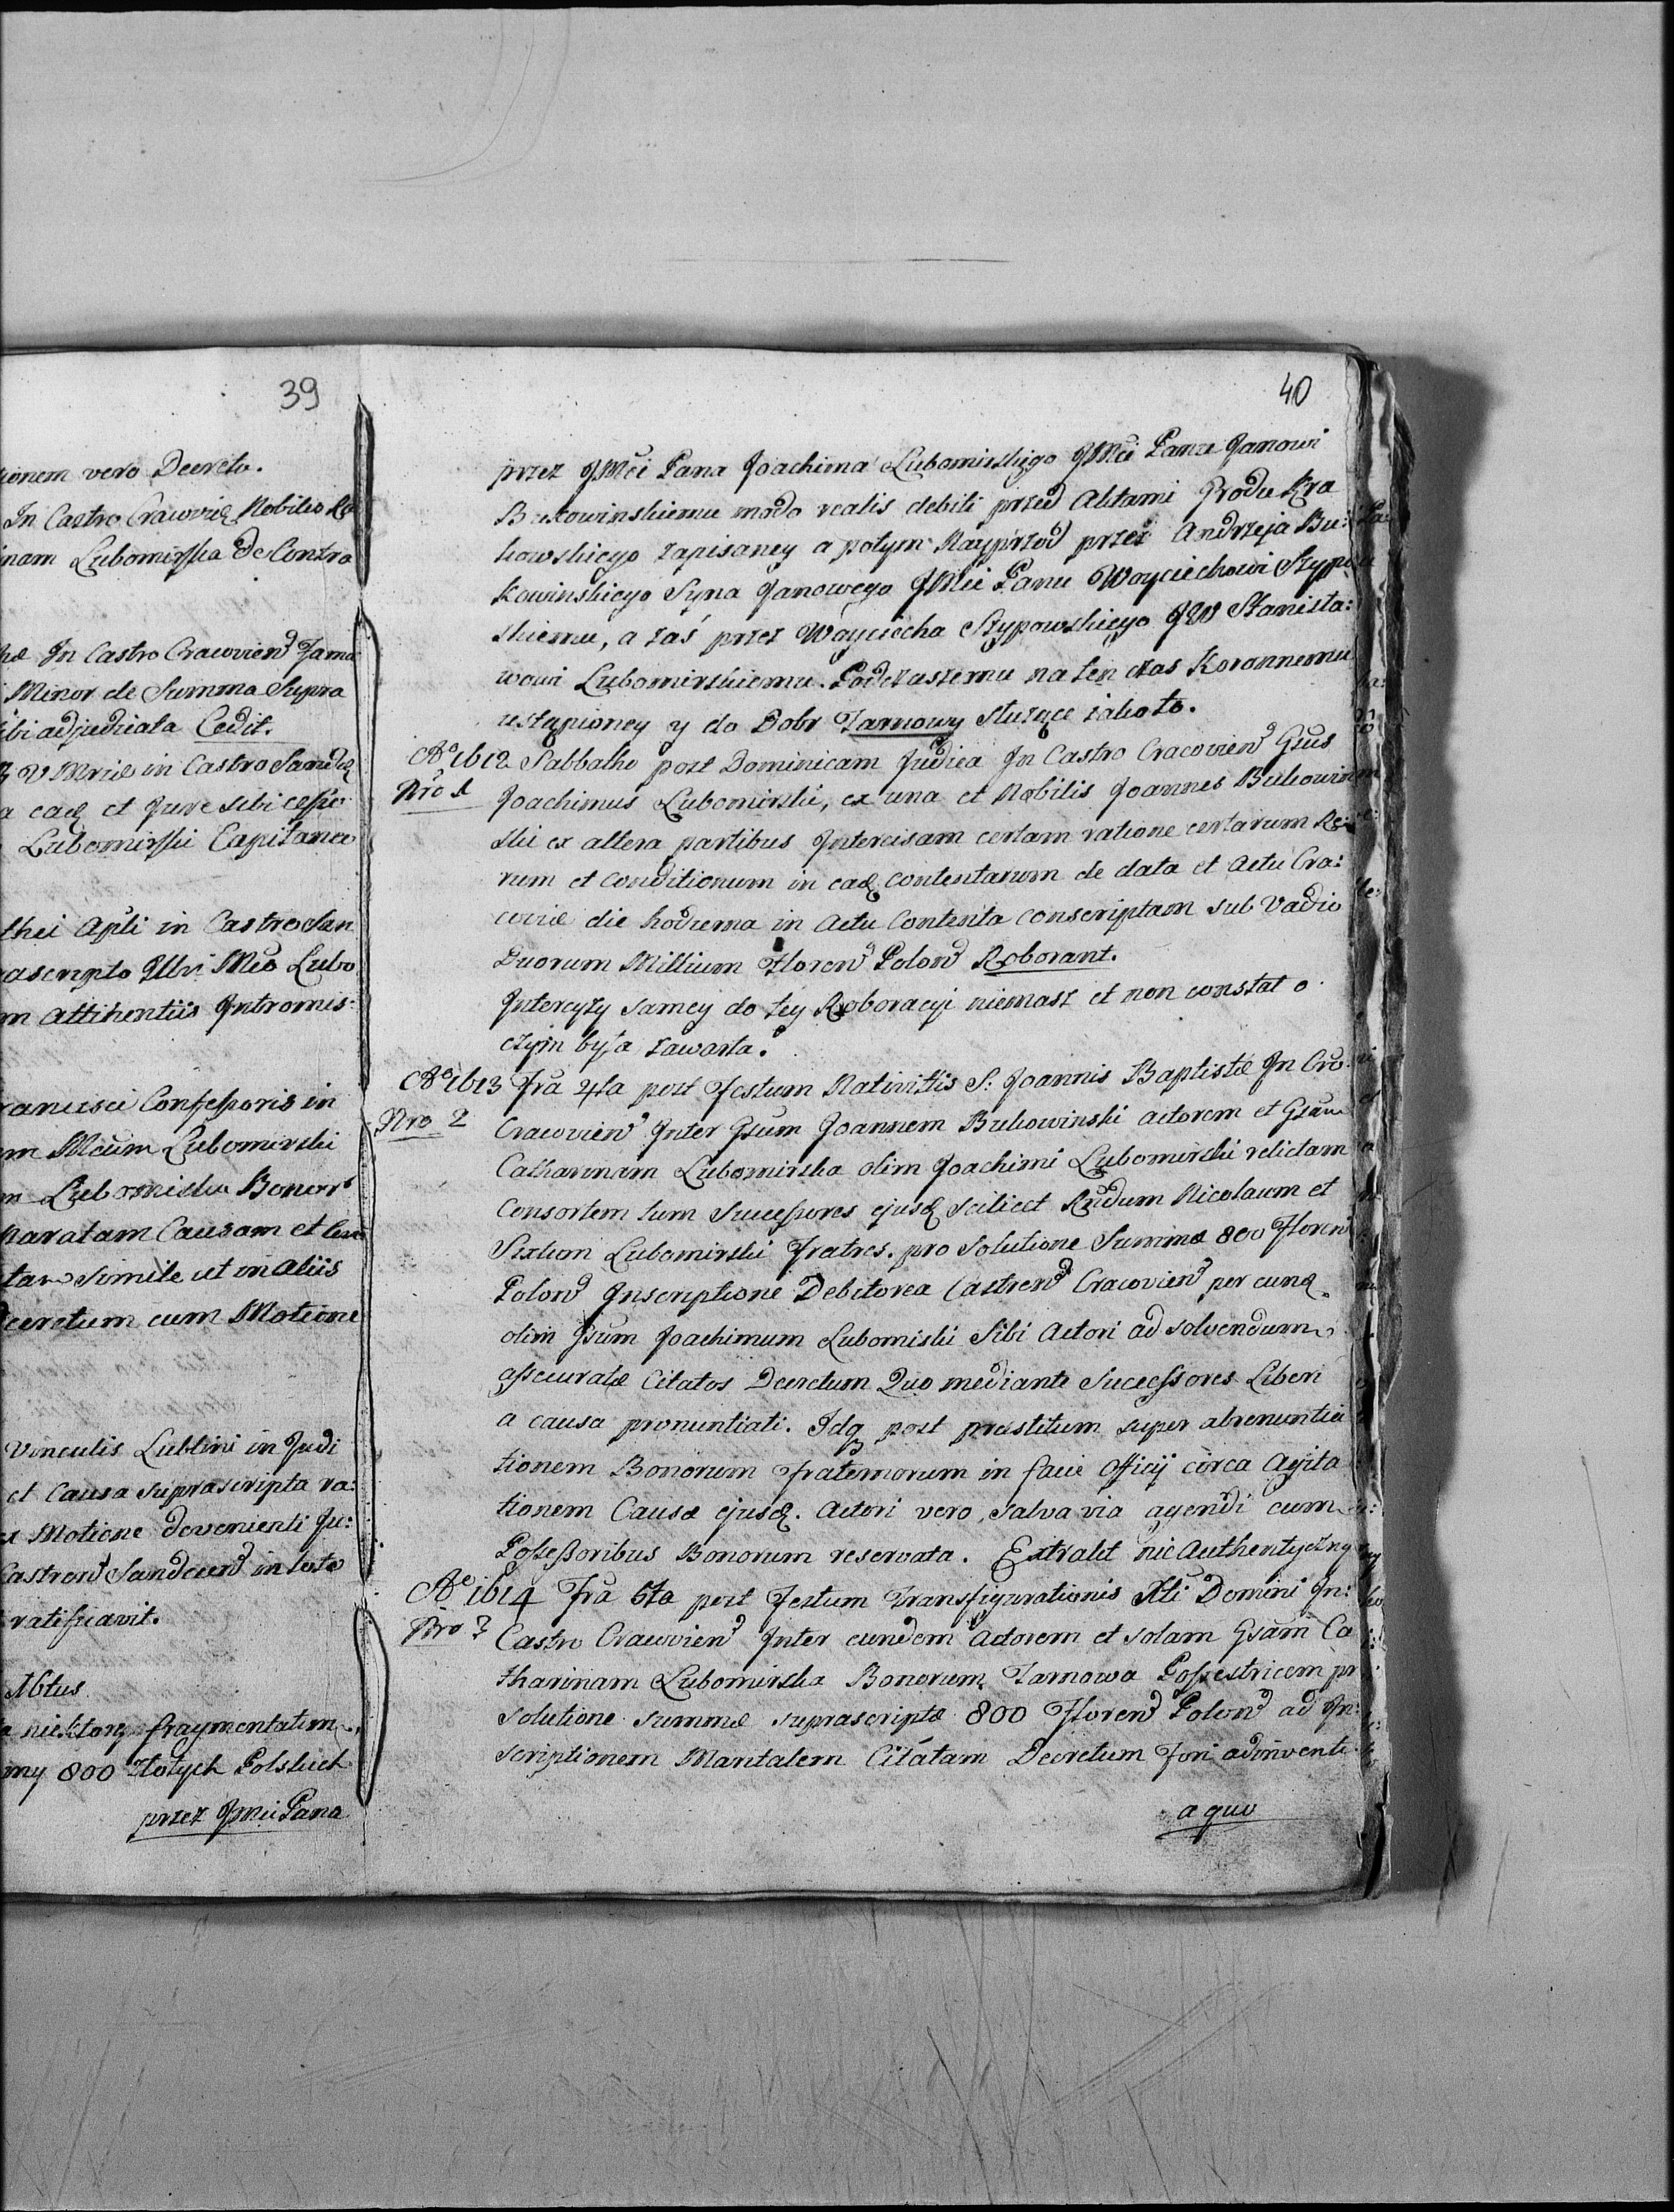 39
ionem vero Decreto.
In Castro Cracoviē Nobilis
nam Lubomirska de Contra
In Castro Cracovien̄ Jama
Minor de Summa Supra
ibi adjudicata Cedit.
in Castro Sandec
et Jure sibi cesso
Lubomirski Capitaneo
thei Apli in Castro San
ascripto Lubo
m attinentiis Intromis:
rancisci Confessoris in
m Mcum Lubomirski
Lubomirska Bonorr
naratam Causam et
simile ut in aliis
ecretum cum Motione
vinculis Lublini in Judi
et Causa suprascripta ra:
Motione devenienti Ju:
Castren̄ Sandecen̄ in toto
ratificavit.
Actus
niektorę fragmentatim
my 800 Złotych Polskich
przez Jmci Pana
40
przez JMći Pana Joachima Lubomirskigo JMći Panu Janowi
Bukowinskiemu modo realis debiti przed Aktami Grodu Kra
kowskiego zapisaney a potym Nayprzod przez Andrzeja Bu:
kowinskiego Syna Janowego JMći Panu Woyciechowi Szypow
skiemu, a zaś przez Woyciecha Szypowskiego JW Stanisła:
wowi Lubomirskiemu Podczaszemu na ten czas Koronnemu
ustąpioney y do Dobr Tarnowy służące iakoto.
Ao 1612 Sabbatho post Dominicam Judica In Castro Cracovien̄ Gsus
Nro 1 Joachimus Lubomirski, ex una et Nobilis Joannes Bukowin
ski ex altera partibus Intercisam certam ratione certarum Re:
rum et conditionum in eadę contentarum de data et Actu Cra:
coviæ die hodierna in Actu Contenta conscriptam sub Vadio
Duorum Millium Floren̄ Polon̄ Roborant.
Intercyzy samey do tey Roboracyi niemasz et non constat o
czym była zawarta.
Ao 1613 Fra 4ta post Festum Nativittis S: Joannis Baptistæ In Cro
Nro 2 Cracovien̄ Inter Gsum Joannem Bukowinski actorem et Gsam
Catharinam Lubomirska olim Joachimi Lubomirski relictam
Consortem tum Successores ejusdę scilicet Rndum Nicolaum et
Sixtum Lubomirski Fratres. pro solutione Summæ 800 Floren̄
Polon̄ Inscriptione Debitorea Castren̄ Cracovien̄ per eundę
olim Gsum Joachimum Lubomirski Sibi Actori ad solvendum
assecuratæ Citatos Decretum Quo mediante Successores Liberi
a causa pronuntiati. Idq post præstitum super abrenuntia
tionem Bonorum fraternorum in facie Officij circa Agita
tionem Causæ ejusdę. Actori vero salva via agendi cum
Possessoribus Bonorum reservata. Extrakt nie Authentyczny
Ao 1614 Fra 5ta post Festum Transfigurationis Xti Domini In:
Nro 3 Castro Cracovien̄ Inter eundem Actorem et solam Gsam Ca
tharinam Lubomirska Bonorum Tarnowa Possestricem pr
solutione summæ suprascriptæ 800 Floren̄ Polon̄ ad In:
scriptionem Maritalem Citátam Decretum Fori adinventi
a quo